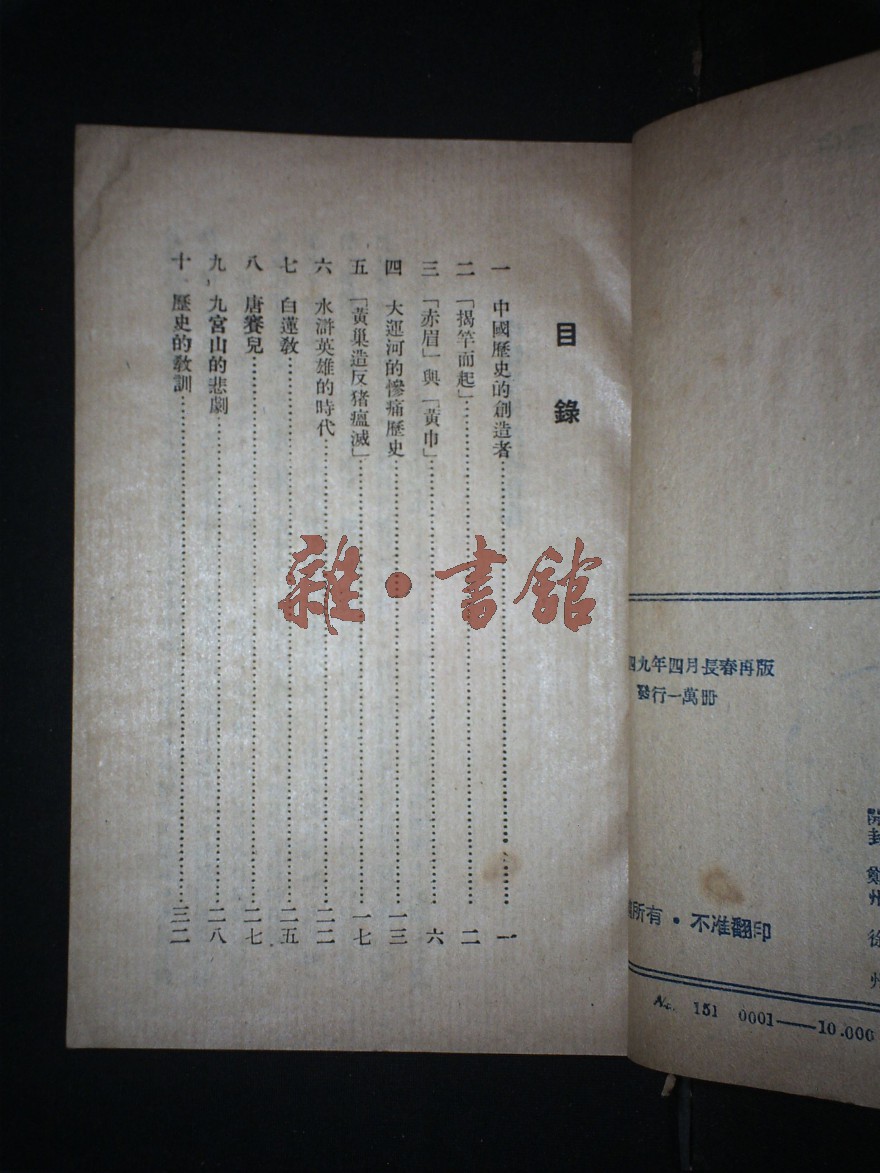 目錄
一 中國歷史的創造者……一
二 「揭竿而起」……二
三 「赤眉」與「黃巾」……六
四 大運河的慘痛歷史……一三
五 「黃巢造反猪瘟滅」……一七
六 水滸英雄的時代……二二
七 白蓮教……二五
八 唐賽兒……二七
九 九宮山的悲劇……二八
十 歷史的教訓……三二
雜·書館
四九年四月長春再版
發行一萬冊
開封 鄭州 徐州
所有·不准翻印
No. 151 0001——10.000